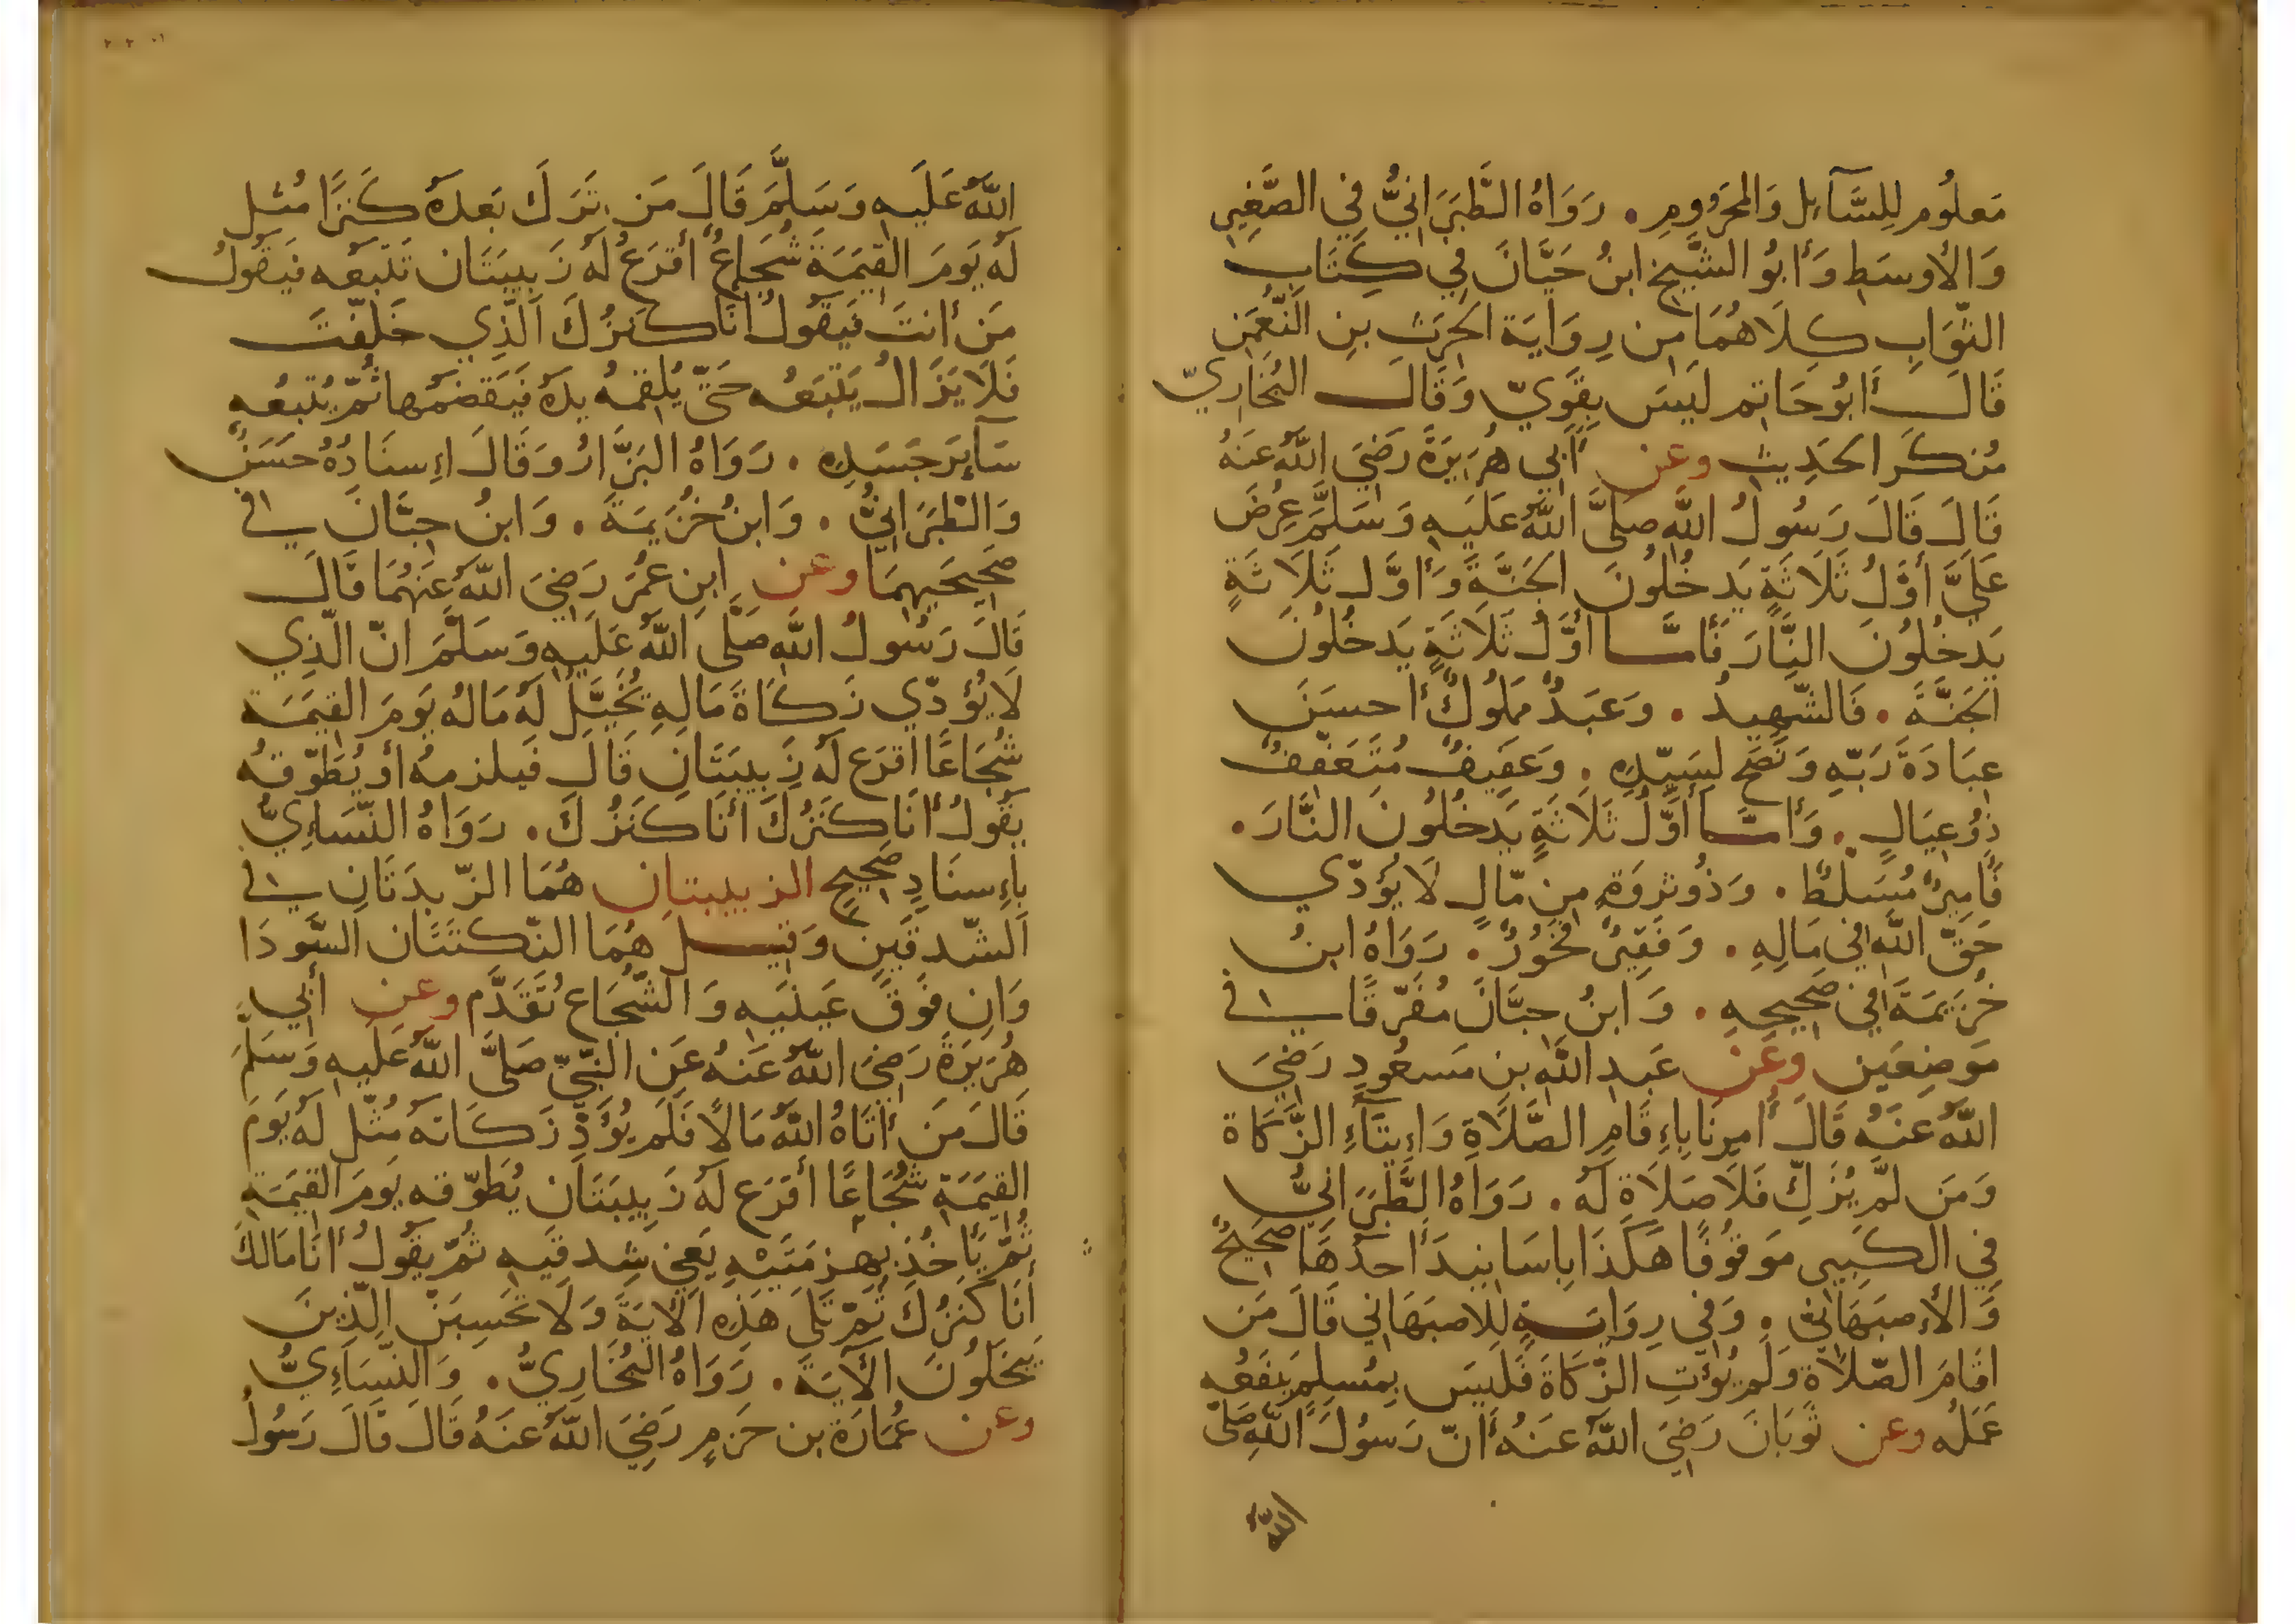 مَعلُوم لِلسَّآىِٕل وَالمَحرُومِ . رَوَاهُ الطَّبَرَانِيُّ فِي الصَّغِيرِ
وَالأوسَطِ وَأَبُو الشَّيخِ ابنُ حَيَّانَ فِي كِتَابِ
الثَّوَابِ كِلَاهُمَا مِن رِوَايَة الحٰرِثِ بنِ النُّعمٰنِ
قَالَ أَبُو حَاتِم لَيسَ بِقَوِيّ وَقَالَ البُخَارِيّ
مُنكَر الحَدِيثِ وعن أَبِي هُرَيرَةَ رَضِيَ اللّٰهُ عَنهُ
قَالَ قَالَ رَسُولُ اللّٰهِ صَلَّى اللّٰهُ عَلَيهِ وَسَلَّمَ عُرِضَ
عَلَيَّ أَوَّلُ ثَلَاثَةٍ يَدخُلُونَ الجَنَّةَ وَأَوَّل ثَلَاثَةٍ
يَدخُلُونَ النَّارَ فَأَمَّا أَوَّلُ ثَلَاثَةٍ يَدخُلُونَ
الجَنَّةَ . فَالشَّهِيدُ . وَعَبدٌ مَملُوكٌ أَحسَنَ
عِبَادَةَ رَبِّهِ وَنَصَح لِسَيِّدِهِ . وَعَفِيفٌ مُتَعَفِّفٌ
ذُو عِيَالٍ . وَأَمَّا أَوَّلُ ثَلَاثَةٍ يَدخُلُونَ النَّارَ .
فَأَمِيرٌ مُسَلَّطٌ . وَذُو ثَروَةٍ مِن مَّالٍ لَا يُؤَدِّي
حَقَّ اللّٰهِ فِي مَالِهِ . وَفَقِيرٌ فَخُورٌ . رَوَاهُ ابنُ
خُزَيمَةَ فِي صَحِيحِهِ . وَابنُ حِبَّانَ مُفَرَّقًا فِي
مَوضِعَينِ وعَن عَبدِ اللّٰهِ بنِ مَسعُودٍ رَضِيَ
اللّٰهُ عَنهُ قَالَ أُمِرنَا بِإِقَامِ الصَّلَاةِ وَإِيتَآءِ الزَّكَاة
وَمَن لَّم يُزَكِّ فَلَا صَلَاةَ لَه . رَوَاهُ الطَّبَرَانِيُّ
فِي الكَبِيرِ مَوقُوفًا هٰكَذَا بِاسَانِيدَ أَحدُهَا صَحِيحٌ
وَالأصبَهَانِي . وَفِي رِوَايَةٍ لِلاصبَهَانِي قَالَ مَن
اقَامَ الصَّلَاة وَلَم يُؤتِ الزَّكَاةَ فَلَيسَ بِمُسلِم يَنفَعُه
عَمَلُه وعن ثَوبَانَ رَضِيَ اللّٰهُ عَنهُ أَنَّ رَسُولَ اللّٰهِ صَلَّى
اللّٰهُ
اللّٰهُ عَلَيهِ وَسَلَّمَ قَالَ مَن تَرَكَ بَعدَهٗ كَنزًا مُثِّل
لَه يَومَ القِيٰمَةِ شُجَاعٌ أَقرَعُ لَهٗ زَبِيبَتَان يَتبَعُه فَيَقُولُ
مَن أَنتَ فَيَقُولُ أَنَا كَنزُكَ الَّذِي خَلَّفتَ
فَلَا يَزَالُ يَتبَعُه حَتّى يُلقِمهُ يدَهٗ فَيَقضَمُها ثُمّ يُتبِعُه
سَآىِٕرَ جَسَدِهٖ . رَوَاهُ البَزَّارُ وَقَالَ إِسنَادُهُ حَسَنٌ
وَالطَّبَرَانِيُّ . وَابنُ خُزَيمَةَ . وَابنُ حِبَّانَ فِي
صَحِيحَيهِمَا وعن ابنِ عُمَرَ رَضِيَ اللّٰهُ عَنهُمَا قَالَ
قَالَ رَسُولُ اللّٰهِ صَلَّى اللّٰهُ عَلَيهِ وَسَلَّمَ انّ الّذِي
لَا يُؤَدِّي زَكَاةَ مَالِهٖ يُخَيَّلُ لَهٗ مَالُهُ يَومَ القِيٰمَة
شُجَاعًا أَقرَع لَهٗ زَبِيبَتَانِ قَالَ فَيلزمهُ أَو يُطَوّقهُ
يَقُولُ أَنَا كَنزُكَ أَنَا كَنزُكَ . رَوَاهُ النَّسَاءِيُّ
بِإِسنَادٍ صَحِيحٍ الزبيبتان هُمَا الزّبدَتَانِ فِي
الشّدقَينِ وَقِيل هُمَا النّكتَتَان السَّودَا
وَانِ فَوقَ عَينَيهِ وَالشُّجَاع تَقَدَّم وعن أَبِي
هُرَيرَةَ رَضِيَ اللّٰهُ عَنهُ عَنِ النَّبِيّ صَلَّى اللّٰهُ عَلَيهِ وَسَلَّمَ
قَالَ مَن أَتَاهُ اللّٰهُ مَالًا فَلَم يُؤَدِّ زَكَاتَهٗ مُثّل لَهٗ يَومَ
القِيٰمَةِ شُجَاعًا أَقرَع لَهٗ زَبِيبَتَان يُطَوّقه يَومَ القِيٰمَةِ
ثُمّ يَأخُذ بِهزمَتَيهِ يَعنِي شِدقَيهِ ثُمّ يَقُولُ أَنَا مَالكَ
أَنَا كَنزُكَ ثُمّ تَلَى هٰذِهِ الآيَةَ وَلَا تَحسِبَنَّ الَّذِينَ
يَبخَلُونَ الآيَةَ . رَوَاهُ البُخَارِيُّ . وَالنَّسَاءِيُّ
وعن عُمَارَةَ بن حَزمٍ رَضِيَ اللّٰهُ عَنهُ قَالَ قَالَ رَسُولُ